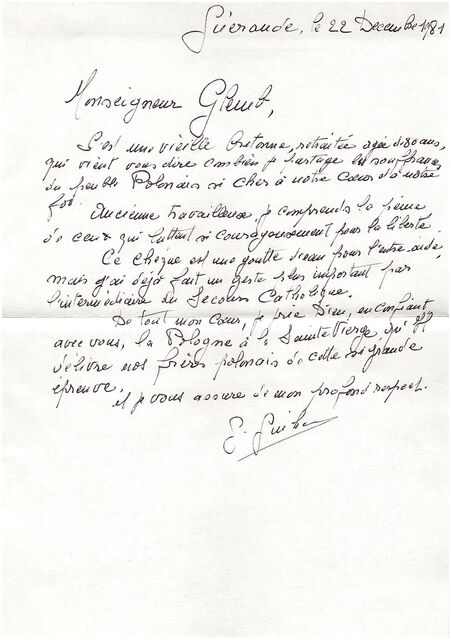 Guérande, le 22 Decembre 1981
Monseigneur Glemb,
C'est une vieille bretonne, retraitée agée de 80 ans,
qui vient vous dire combien je partage les souffrances
du peuple Polonais si cher à notre Cœur et à notre
foi.
Ancienne travailleuse, je comprends la peine
de ceux qui luttent si courageusement pour la liberté.
Ce chèque est une goutte d'eau pour l'entre-aide,
mais j'ai déjà fait un geste plus important par
l'intermédiaire du Secours Catholique.
De tout mon Cœur, je prie Dieu, en confiant
avec vous, la Pologne à la Sainte Vierge, qu'Il
délivre nos frères polonais de cette si grande
épreuve,
et je vous assure de mon profond respect.